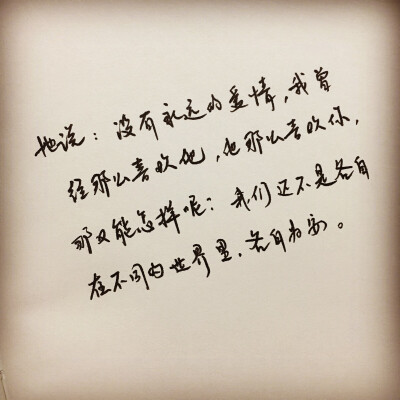 她说：没有永远的爱情，我曾
经那么喜欢他，他那么喜欢你，
那又能怎样呢？我们还不是各自
在不同的世界里，各自为安。